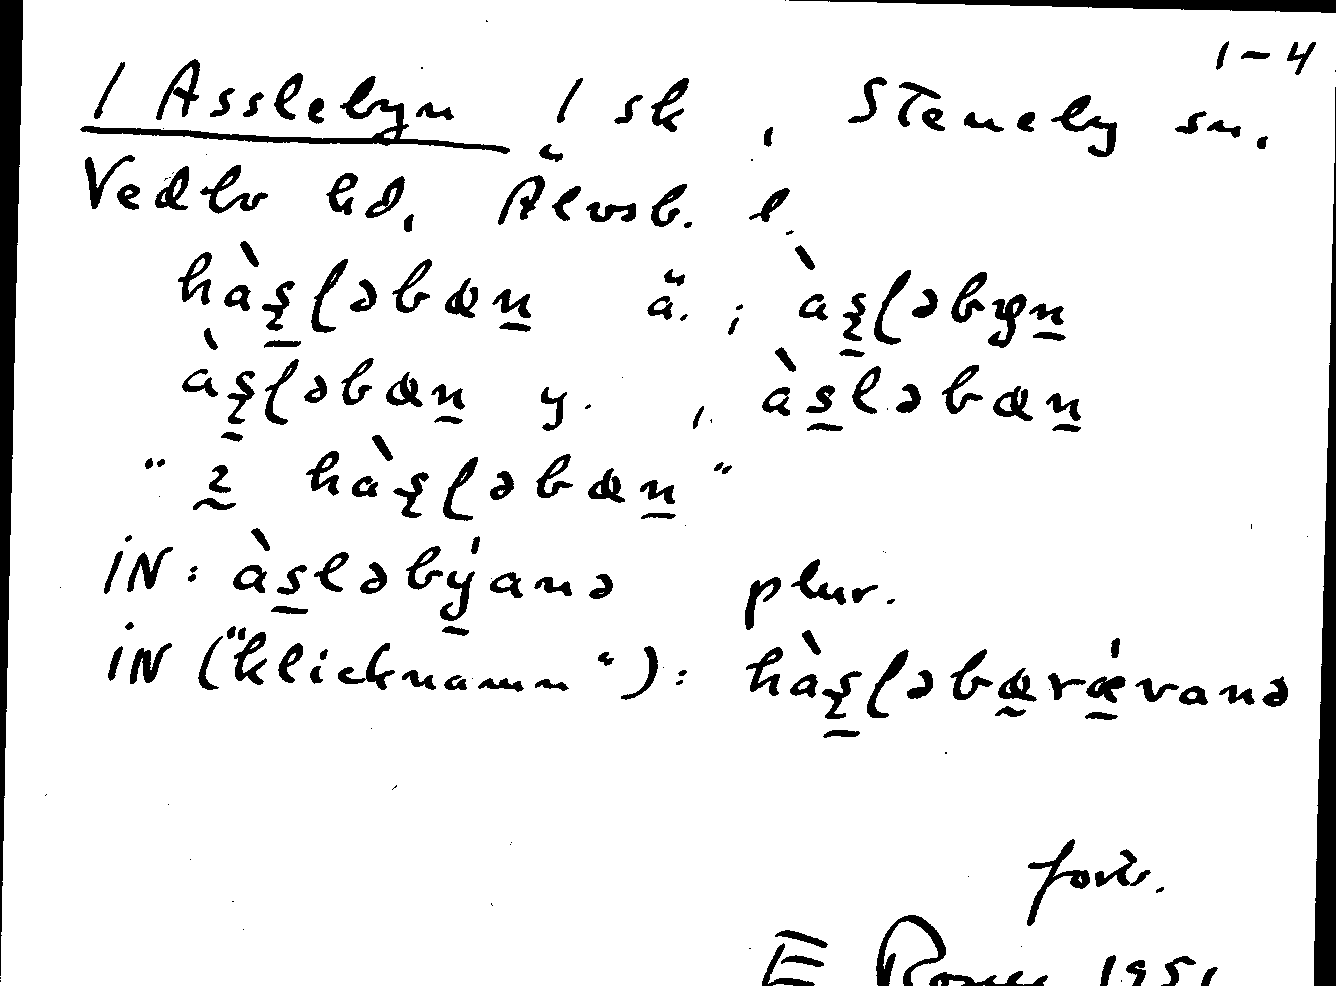 1-4
1 Asslebyn 1 sk, Steneby sn.
Vedbo hd, Älvsb. l.
hàs̱ləbæṉ ä.; às̱ləbyṉ
às̱ləbæṉ y., às̱ləbæṉ
"ḭ hàs̱ləbæṉ"
iN: às̱ləbýanə plur.
iN ("klicknamn"): hàs̱ləbærǽvanə
forts.
E Rosell 1951